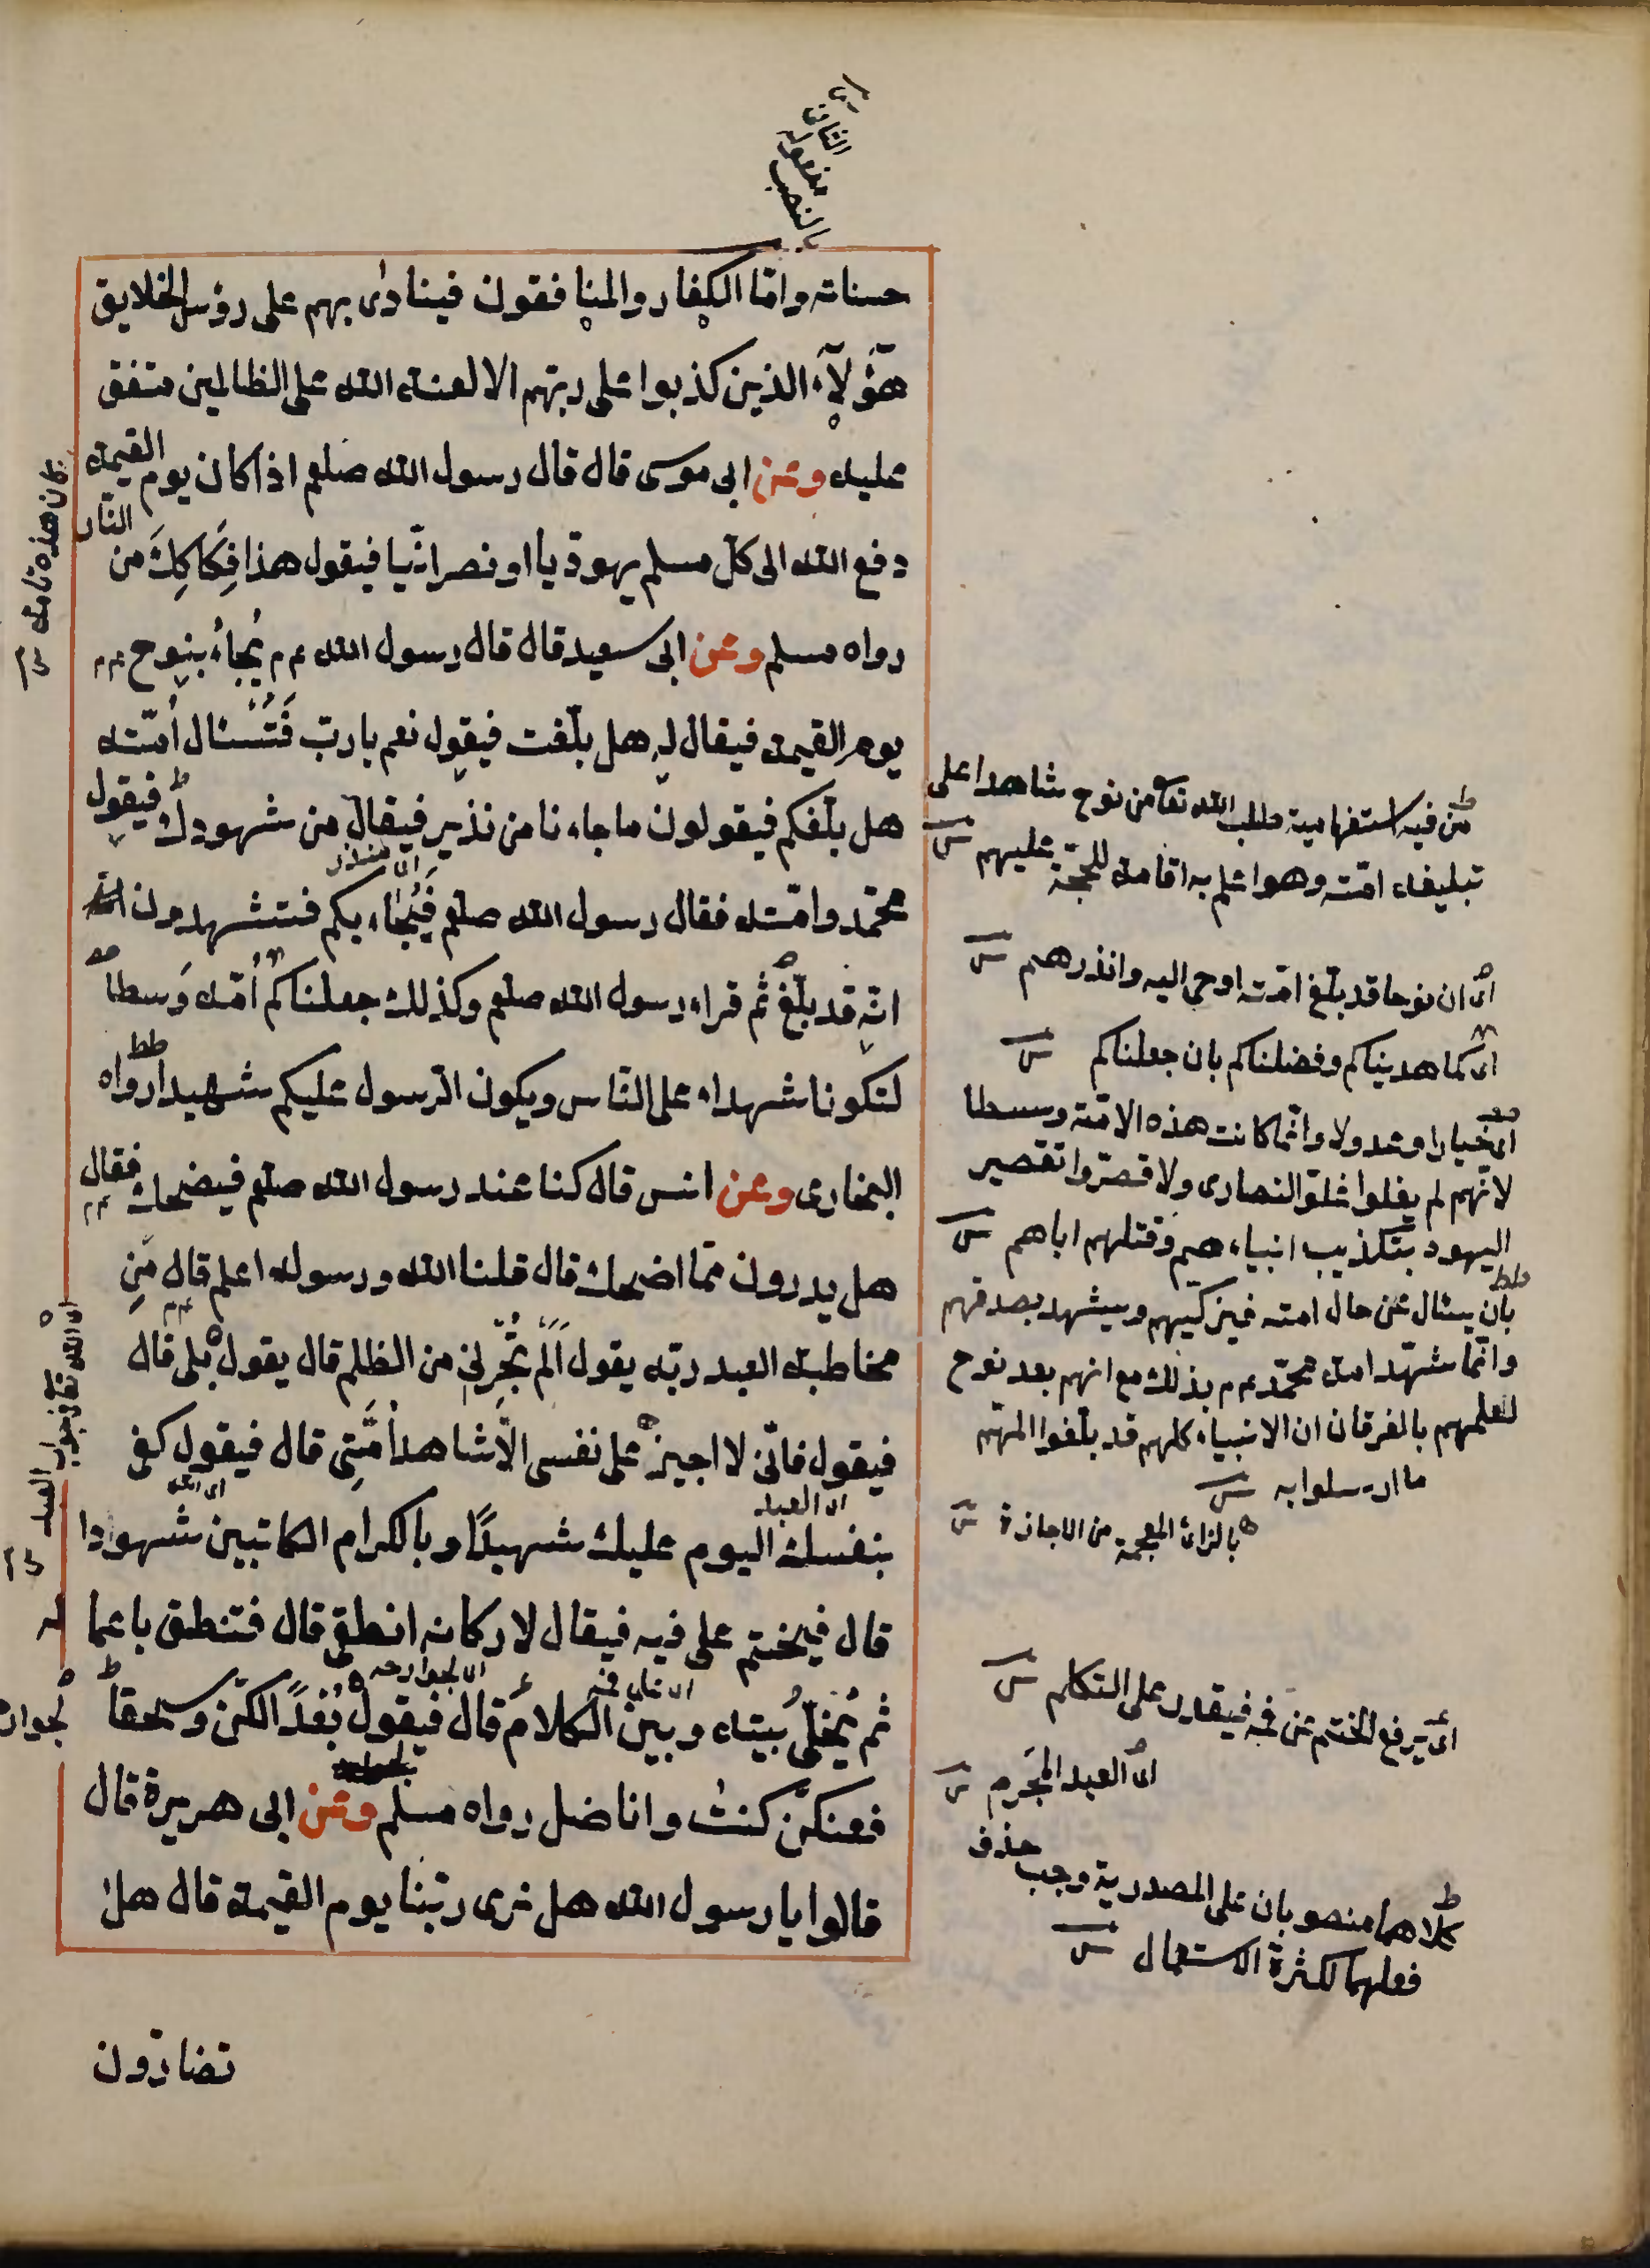 حسناته واما الكفار والمنافقون فينادى بهم على رؤس الخلايق
هؤلآء الذين كذبوا على ربهم الا لعنة الله على الظالمين متفق
عليه وعن ابى موسى قال قال رسول الله صلعم اذا كان يوم القيمة
دفع الله الى كل مسلم يهوديا او نصرانيا فيقول هذا فكاكك من النار
رواه مسلم وعن ابى سعيد قال قال رسول الله عم يجاء بنوح عم
يوم القيمة فيقال له هل بلغت فيقول نعم يا رب فتسئال امته
هل بلغكم فيقولون ما جاءنا من نذير فيقال من شهودك فيقول
محمد وامته فقال رسول الله صلعم فيجاء بكم فتشهدون
انه قد بلغ ثم قراء رسول الله صلعم وكذلك جعلناكم امة وسطا
لتكونا شهداء على الناس ويكون الرسول عليكم شهيدا رواه
البخارى وعن انس قال كنا عند رسول الله صلعم فيضحك فقال
هل يدرون مما اضحك قال قلنا الله ورسوله اعلم قال من
مخاطبة العبد ربه يقول الم تجرنى من الظلم قال يقول بلى قال
فيقول فانى لا اجيز على نفسى الا شاهدا منى قال فيقول كفى
بنفسك اليوم عليك شهيدا وبالكرام الكاتبين شهودا
قال فيختم على فيه فيقال لاركانه انطقى قال فتنطق باعما
ثم يخلى بينه وبين الكلام قال فيقول بعدا لكن وسحقا
فعنكن كنت واناضل رواه مسلم وعن ابى هريرة قال
قالوا يا رسول الله هل نرى ربنا يوم القيمة قال هل
تضارون
من فيه استفهامية طلب الله تعا من نوح شاهدا على
تبليغه امته وهو اعلم به اقامة للحجة عليهم
اى ان نوحا قد بلغ امته اوحى اليه وانذرهم
اى كما هديناكم وفضلناكم بان جعلناكم
اى خيارا وعدولا وانما كانت هذه الامة وسطا
لانهم لم يغلوا غلو النصارى ولا قصروا تقصير
اليهود بتكذيب انبياءهم وقتلهم اباهم
بان يسئال عن حال امته فيزكيهم ويشهد بصدقهم
وانما شهد امة محمد عم بذلك مع انهم بعد نوح
لعلمهم بالفرقان ان الانبياء كلهم قد بلغوا امتهم
ما ارسلوا به
بالزاى المعجمة من الاجازة
اى يرفع الختم عن فمه فيقدر على التكلم
اى العبد المجرم
كلاهما منصوبان على المصدرية وجب حذف
فعلهما لكثرة الاستعمال
اى منذر
اى العبد
اى الجوارحه